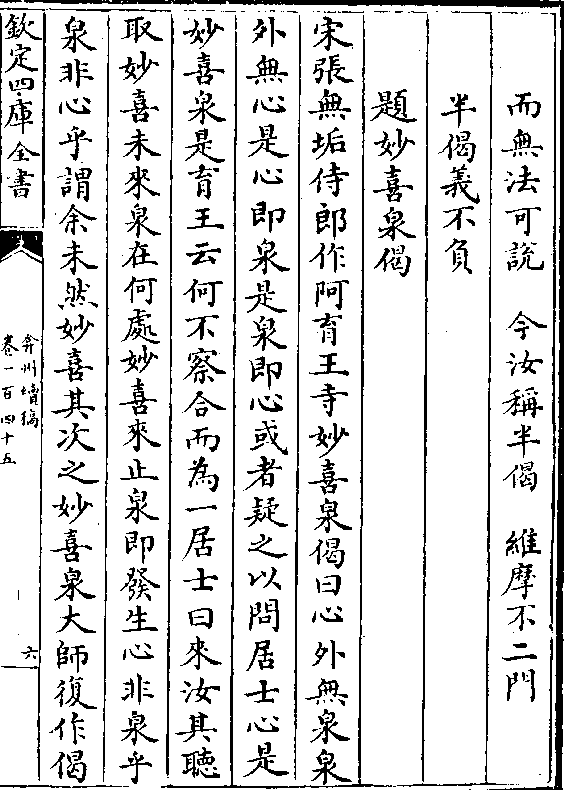 而無法可說　今汝稱半偈　維摩不二門
半偈義不負
題妙喜泉偈
宋張無垢侍郎作阿育王寺妙喜泉偈曰心外無泉泉
外無心是心即泉是泉即心或者疑之以問居士心是
妙喜泉是育王云何不察合而為一居士曰來汝其聽
取妙喜未來泉在何處妙喜來止泉即發生心非泉乎
泉非心乎謂余未然妙喜其次之妙喜泉大師復作偈
欽定四庫全書
弇州續稿
卷一百四十五
六